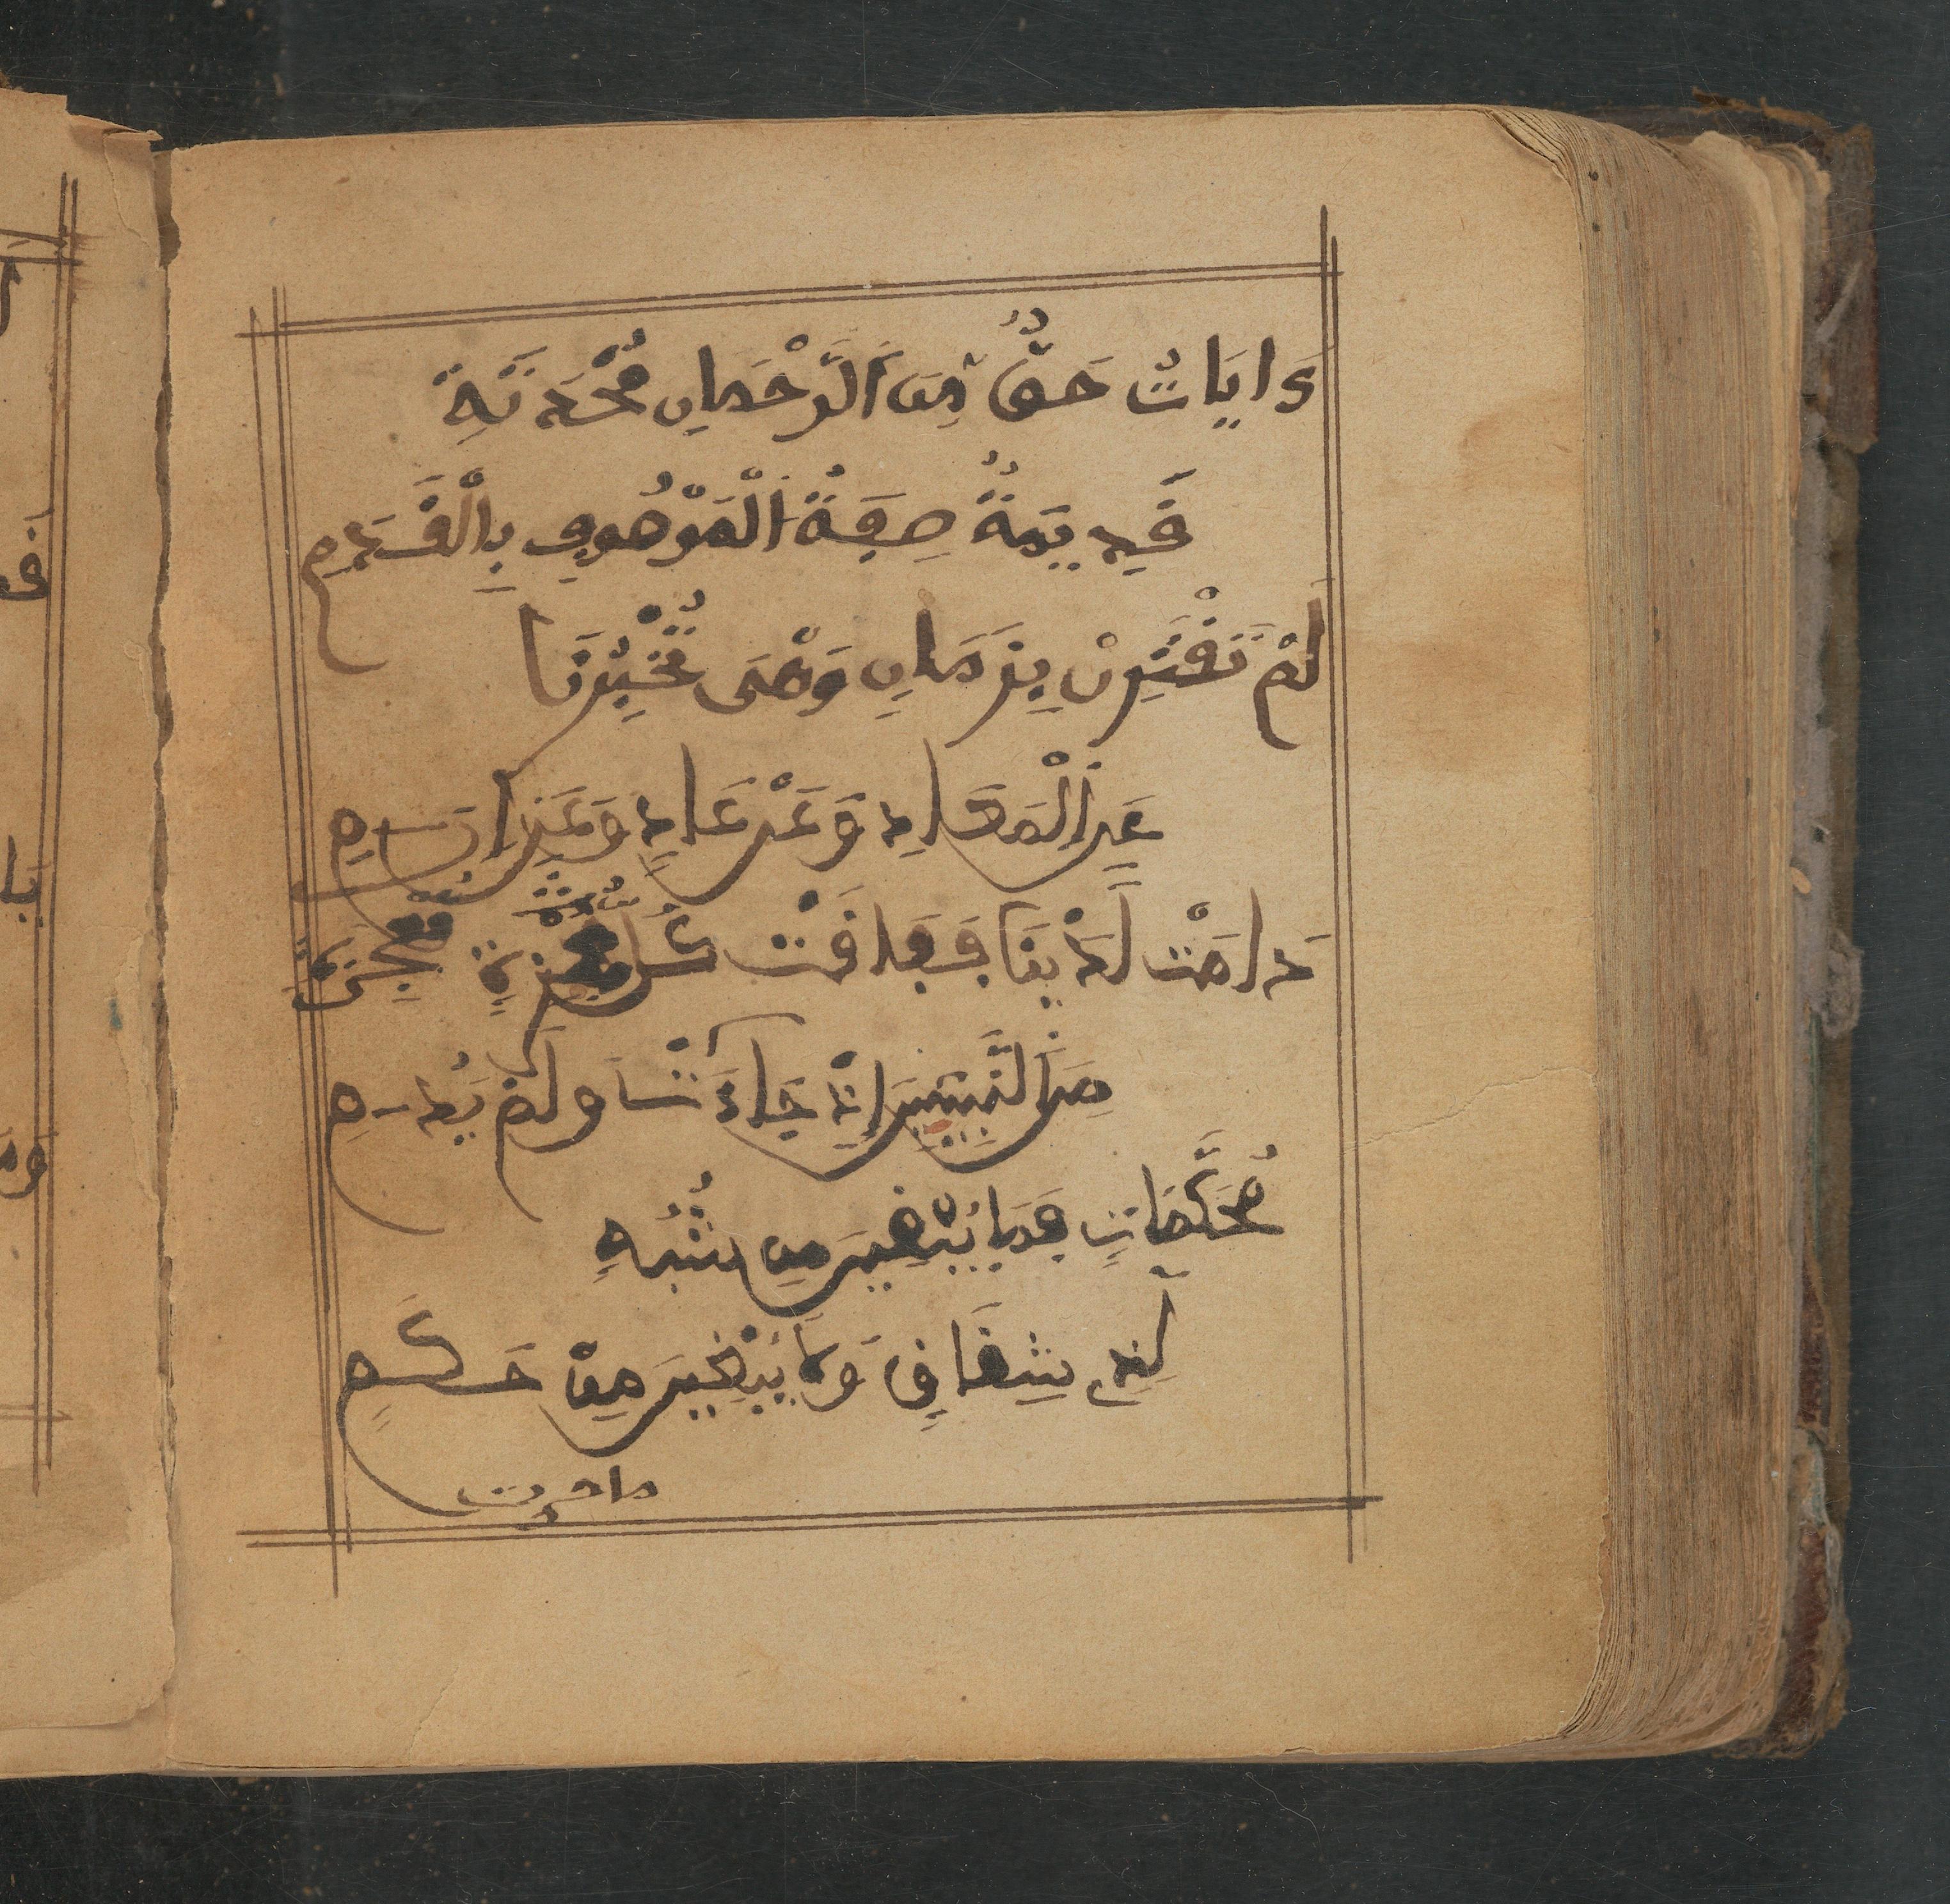 ءَايَاتُ حَقٍّ مِنَ الرَّحْمَانِ مُحْدَثَةٌ
قَدِيمَةٌ صِفَةُ الْمَوْصُوفِ بِالْقِدَمِ
لَمْ تَقْتَرِنْ بِزَمَانٍ وَهْىَ تُخْبِرُنَا
عَنِ الْمَعَادِ وَعَنْ عَادٍ وَعَنِ ارَمِ
دَامَتْ لَدَيْنَا فَفَاقَتْ كُلَّ مُعْجِزَةٍ مُعْجِزَةٍ
مِنَ النَّبِيِّينَ إِذْ جَاءَتْ وَلَمْ تَدُمِ
مُحَكَّمَاتٌ فَمَا يُبْقِينَ مِن شُبَهٍ
لِذِي شِقَاقٍ وَلَا يَبْغِينَ مِنْ حَكَمِ
ما حربت